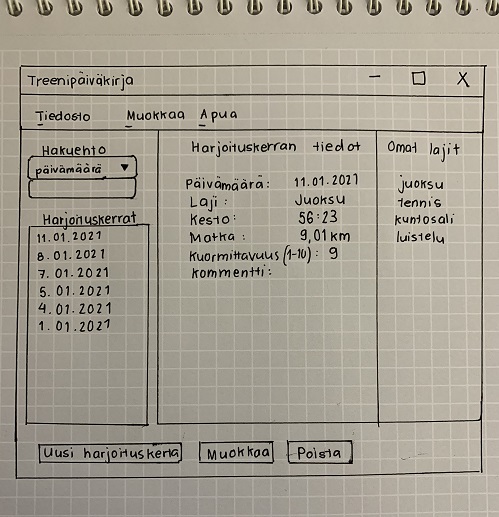 Treenipäiväkirja
Tiedosto Muokkaa Apua
Hakuehto
päivämäärä
Harjoituskerrat
11.01.2021
8.01.2021
7.01.2021
5.01.2021
4.01.2021
1.01.2021
Harjoituskerran tiedot
Päivämäärä: 11.01.2021
Laji: Juoksu
Kesto: 56:23
Matka: 9,01 km
Kuormittavuus (1-10): 9
Kommentti:
Omat lajit
juoksu
tennis
kuntosali
luistelu
Uusi harjoituskerta Muokkaa Poista